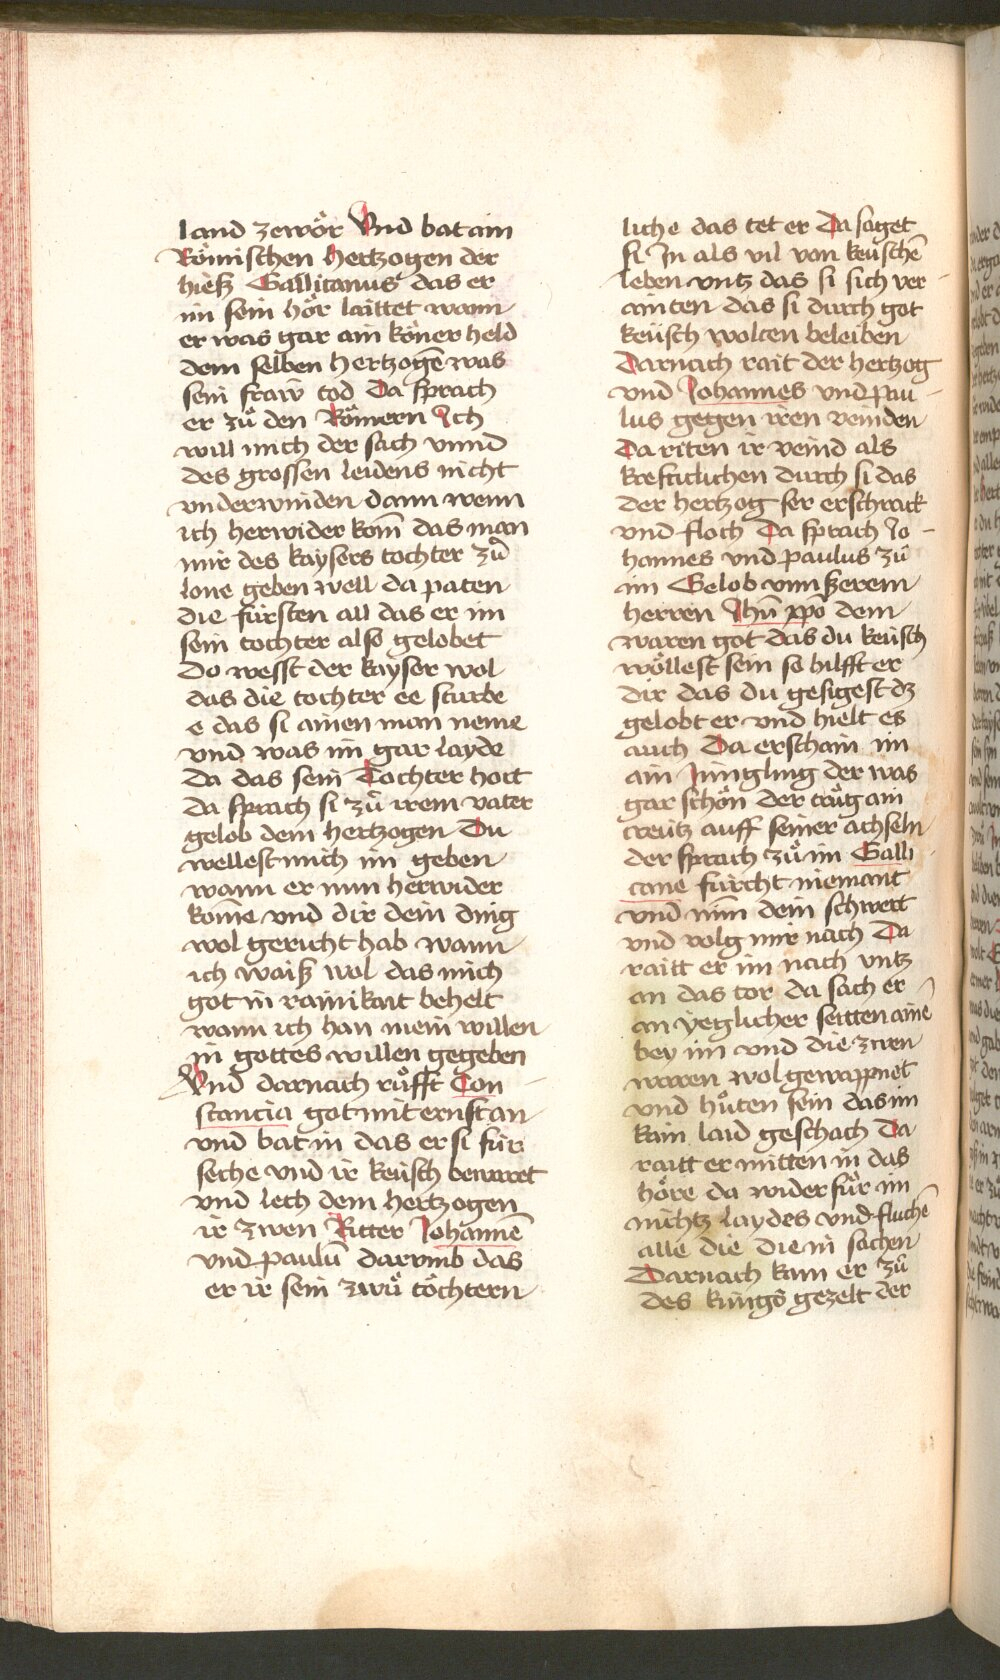 land zewör Vnd bat ain
Römischen hertzogen der
hieß Gallicanus das er
im sein hör laittet wann
er was gar ain köner held
dem selben hertzogē was
sein fraw tod Da sprach
er zů den Römern Ich
will mich der sach vnnd
des grossen leidens nicht
vnderwinden dann wenn
ich herwider kom̄ das man
mir des kaysers tochter zů
lone geben well da paten
die fürsten all das er im
sein tochter also gelobet
do wesst der kayser wol
das die tochter ee sturbe
e das si ainen man neme
vnd was im gar layde
Da das sein Tochter hort
da sprach si zů irem vater
gelob dem hertzogen Du
wellest mich im geben
wann er nun herwider
kom̄e vnd dir dein ding
wol gericht hab wann
ich waiß wol das mich
got in rainikait behelt
wann ich han mein willen
in gottes willen gegeben
Vnd darnach růfft Con
stancia got mit ernst an
vnd bat in das er si für
seche vnd ir keüsch bewaret
vnd lech dem hertzogen
ir zwen Ritter Johannē
vnd paulū darumb das
er ir sein zwů töchtern
liche das tet er Da saget
si In als vil von keuschē
leben vntz das si sich ver
ainten das si durch got
keüsch wolten beleiben
Darnach rait der hertzog
vnd Johannes vnd pau
lus gegen iren veinden
Da riten ir veind als
krefticlichen durch si das
der hertzog ser erschrack
vnd floch Da sprach Jo
hannes vnd paulus zů
im Gelob vnnßerem
herren Jhū xpō dem
waren got das du keüsch
wöllest sein so hilfft er
dir das du gesigest dz
gelobt er vnd hielt es
auch Da erschain im
ain Jüngling der was
gar schön der trůg ain
creütz auff seiner achseln
der sprach zů im Galli
cane fürcht niemant
vnd nim̄ dein schwert
vnd volg mir nach Da
raitt er im nach vntz
an das tor da sach er
an yeglicher seitten ainē
bey im vnd die zwen
waren wol gewappnet
vnd hůten sein das im
kain laid geschach Da
raitt er mitten in das
höre da widerfůr im
nichtz laydes vnd fluchē
alle die die in sachen
Darnach kam er zů
des küngs gezelt der